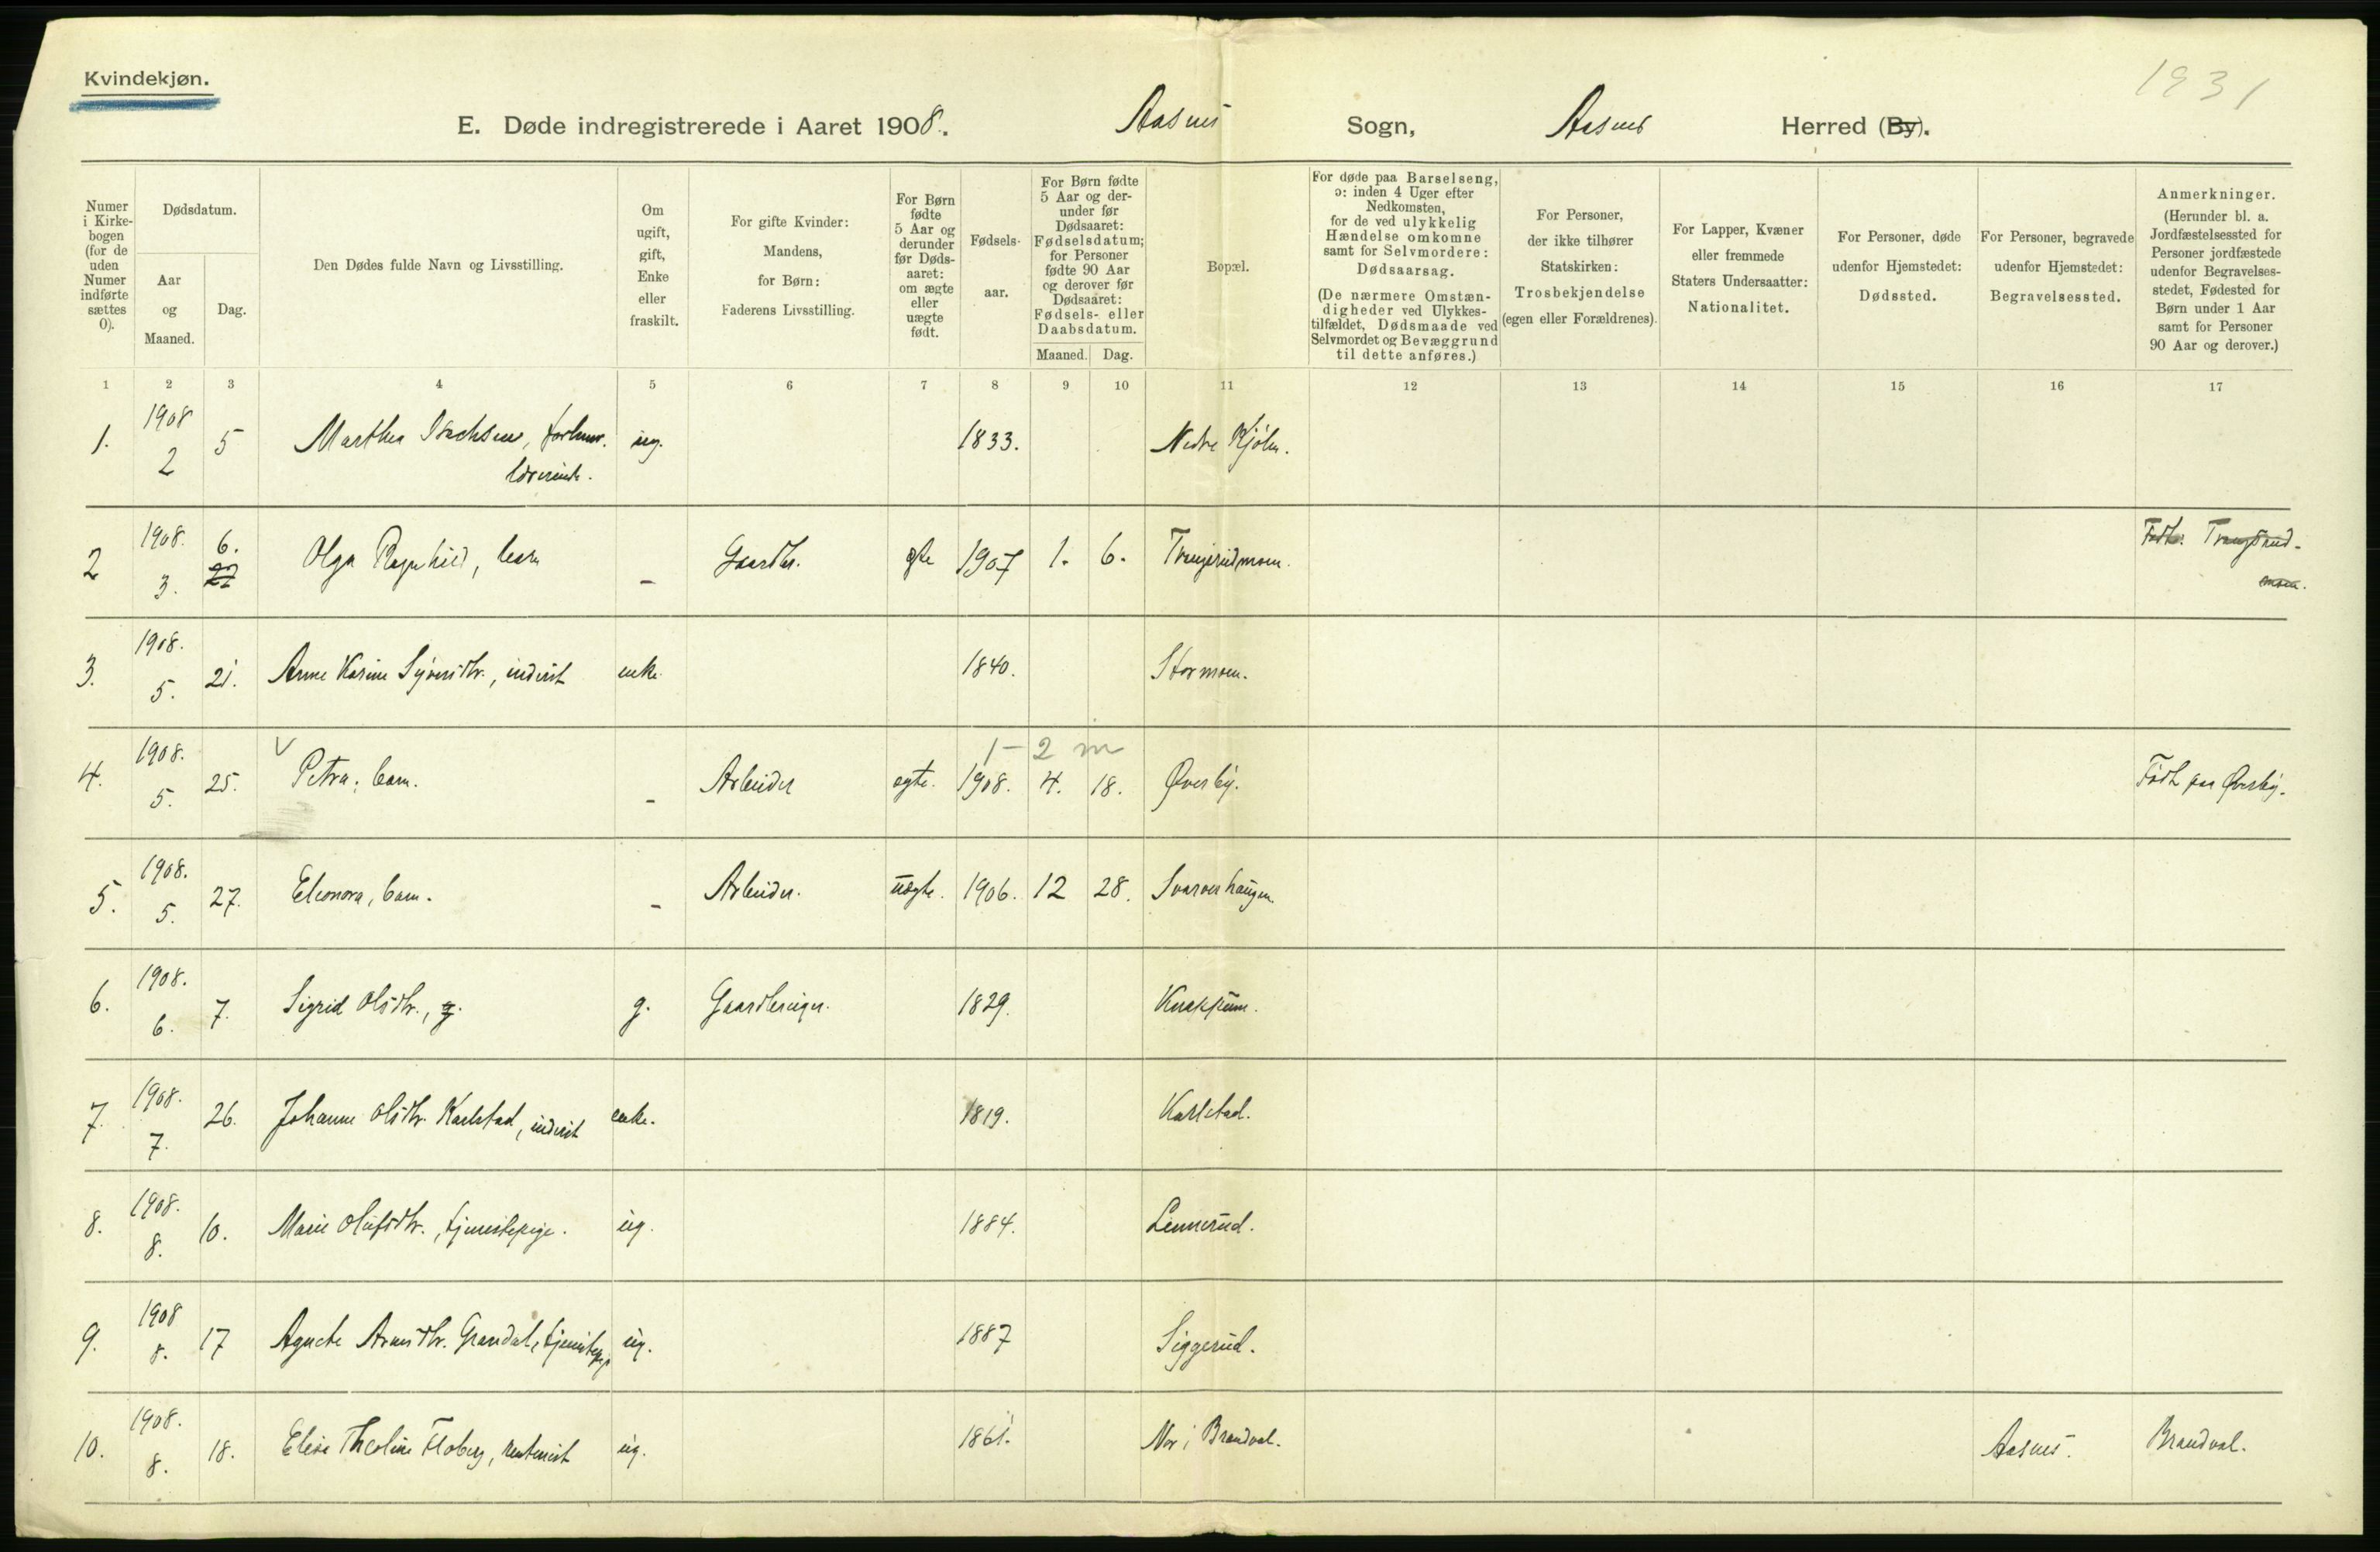 1931
Kvindekjøn.
E. Døde indregistrerede i Aaret 1908. Aasnes Sogn, Aasnes Herred (By).
Numer i Kirkebogen (for de uden Numer indførte sættes 0).
Dødsdatum.
Aar og Maaned.
Dag.
Den Dødes fulde Navn og Livsstilling.
Om ugift, gift, Enke eller fraskilt.
For gifte Kvinder: Mandens, for Børn: Faderens Livsstilling.
For Børn fødte 5 Aar og derunder før Dødsaaret: om ægte eller uægte født.
Fødselsaar.
For Børn fødte 5 Aar og derunder før Dødsaaret: Fødselsdatum; for Personer fødte 90 Aar og derover før Dødsaaret: Fødsels- eller Daabsdatum.
Maaned. Dag.
Bopæl.
For døde paa Barselseng, ɔ: inden 4 Uger efter Nedkomsten, for de ved ulykkelig Hændelse omkomne samt for Selvmordere: Dødsaarsag.
(De nærmere Omstændigheder ved Ulykkestilfældet, Dødsmaade ved Selvmordet og Bevæggrund til dette anføres.)
For Personer, der ikke tilhører Statskirken: Trosbekjendelse (egen eller Forældrenes).
For Lapper, Kvæner eller fremmede Staters Undersaatter: Nationalitet.
For Personer, døde udenfor Hjemstedet: Dødssted.
For Personer, begravede udenfor Hjemstedet: Begravelsessted.
Anmerkninger.
(Herunder bl. a. Jordfæstelsessted for Personer jordfæstede udenfor Begravelsesstedet, Fødested for Børn under 1 Aar samt for Personer 90 Aar og derover.)
1 2 3 4 5 6 7 8 9 10 11 12 13 14 15 16 17
1. 1908 2 5 Marthea Isachsen, forhenv. lærerinde. ug. 1833. Nedre Kjølen.
2 1908. 3. 6. 27 Olga Ragnhild, barn - Gaardbr. ægte 1907 1. 6. Trangerudmoen. Født: Trangerudmoen.
3. 1908. 5. 21. Anne Karine Syversdtr., inderst enke 1840. Stormoen.
1-2 m
4. 1908. 5. 25. Petra, barn. - Arbeider ægte. 1908. 4. 18. Øverby. Født paa Øverby.
5. 1908. 5. 27. Eleonora, barn. - Arbeider. uægte. 1906. 12 28. Svarverhaugen.
6. 1908. 6. 7. Sigrid Olsdtr., g. g. Gaardbruger. 1829. Knappum.
7. 1908. 7. 26. Johanne Olsdtr. Karlstad, inderst enke. 1819. Karlstad.
8. 1908. 8. 10. Marie Olufsdtr., tjenestepige. ug. 1884. Linnerud.
9. 1908 8. 17 Agnete Arnesdtr. Grandal, tjenestepige ug. 1887 Siggerud.
10. 1908. 8. 18. Elise Theoline Floberg, rentenist ug. 1861. Nor i Brandval. Aasnes. Brandval.